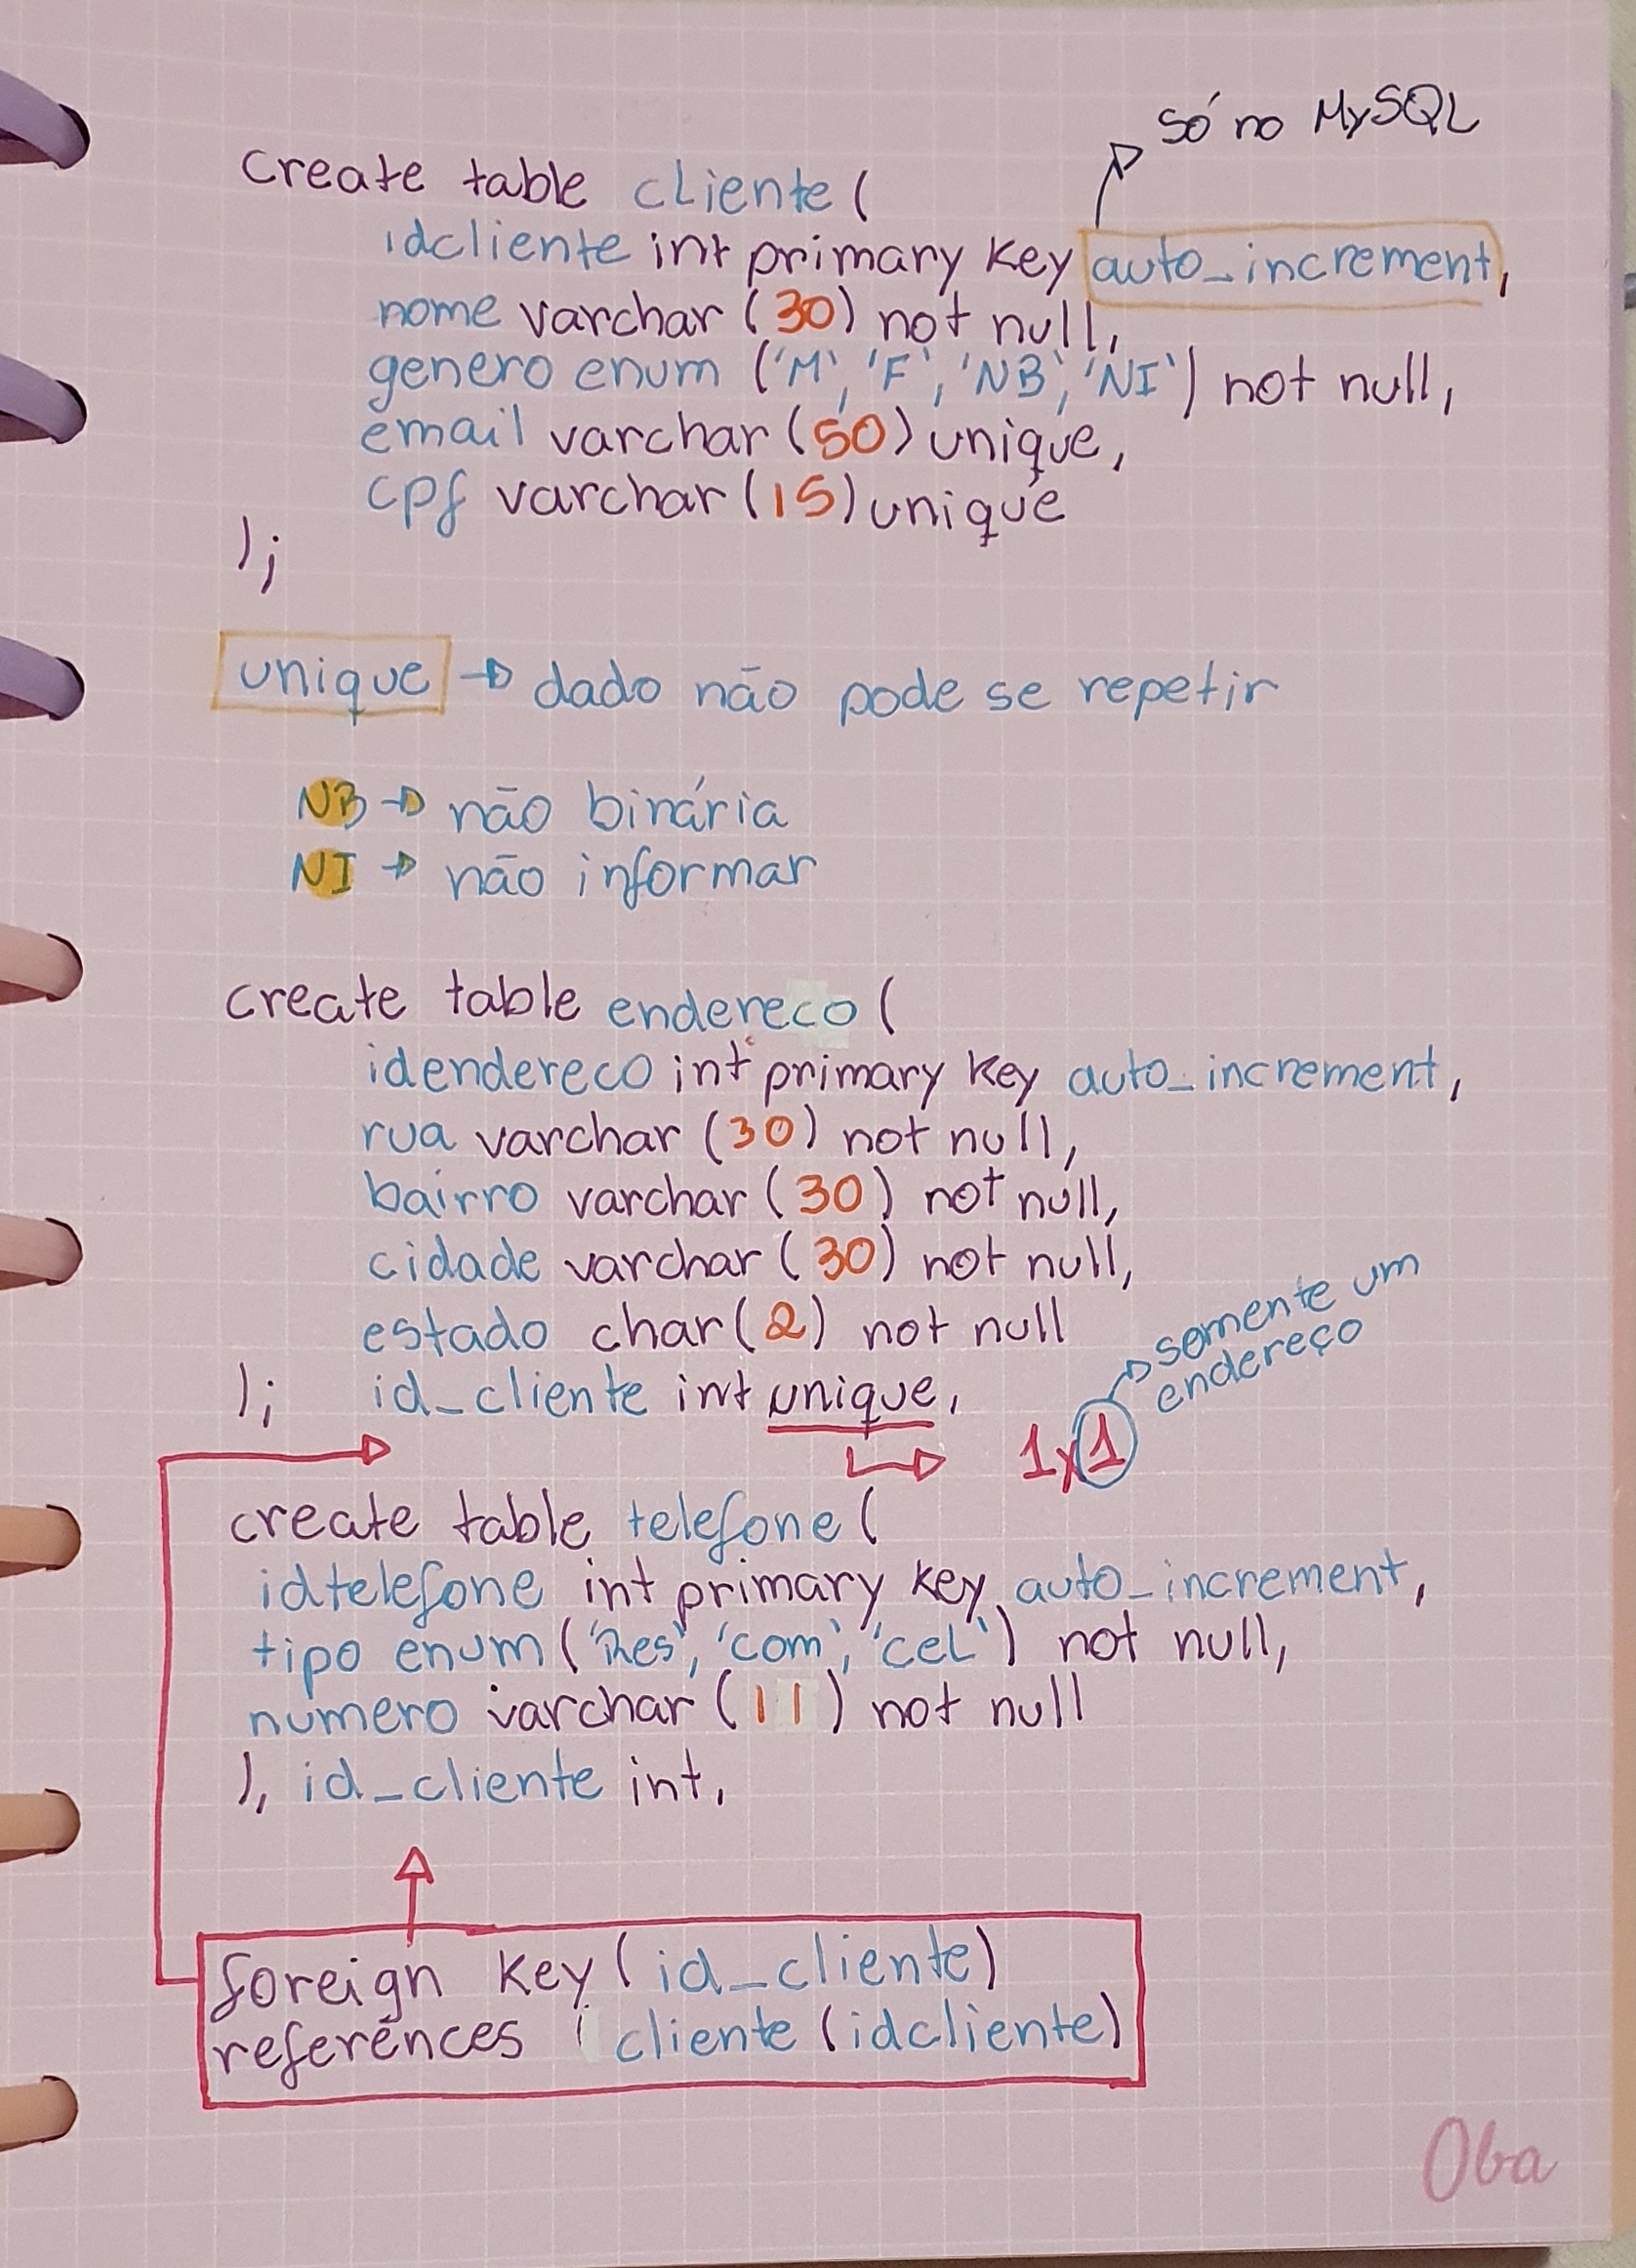 só no MySQL
create table cliente (
idcliente int primary key auto_increment,
nome varchar (30) not null,
genero enum ('M', 'F', 'NB', 'NI') not null,
email varchar (50) unique,
cpf varchar (15) unique
);
unique → dado não pode se repetir
NB → não binária
NI → não informar
create table endereco (
idendereco int primary key auto_increment,
rua varchar (30) not null,
bairro varchar (30) not null,
cidade varchar (30) not null,
estado char (2) not null
); id_cliente int unique,
→ somente um
endereço
1x1
create table telefone (
idtelefone int primary key auto_increment,
tipo enum ('Res', 'com', 'cel') not null,
numero varchar (11) not null
), id_cliente int,
foreign key (id_cliente)
references cliente (idcliente)
Oba